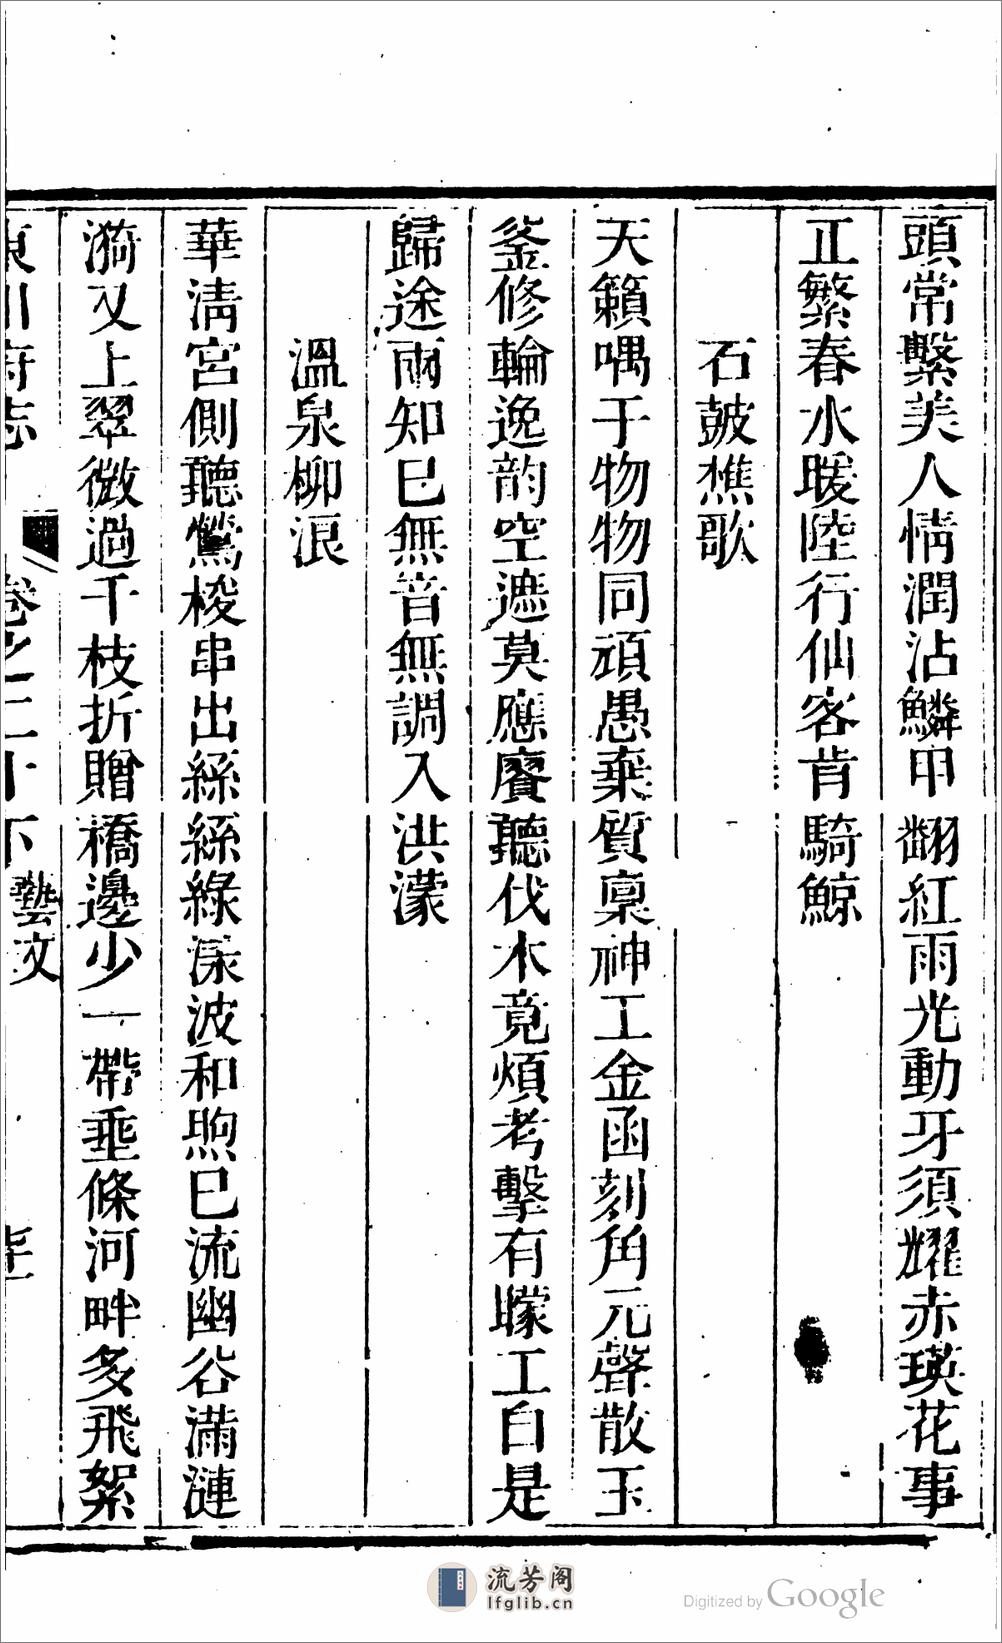 頭常繫美人情潤沾鱗甲翻紅雨光動牙須耀赤瑛花事
正繁春水暖陸行仙客肯騎鯨
石鼓樵歌
天籟喁于物物同頑愚棄質稟神工金函刻角元聲散玉
釜修輪逸韵空遮莫應賡聽伐木竟煩考擊有矇工自是
歸途兩知已無音無調入洪濛
溫泉柳浪
華清宮側聽鶯梭串出絲絲綠漾波和煦已流幽谷滿漣
漪又上翠微過千枝折贈橋邊少一帶垂條河畔多飛絮
東川府志 卷之二十下 藝文
流芳阁
lfglib.cn
Digitized by Google